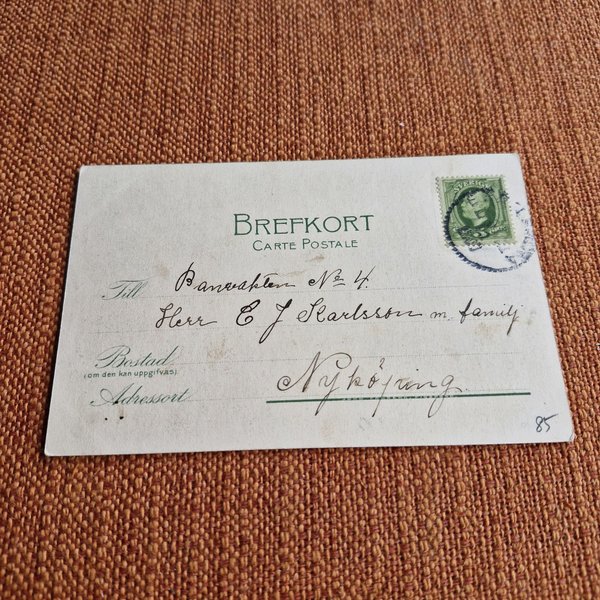 SVERIGE
BREFKORT
CARTE POSTALE
Till Banvakten No 4.
Herr E J Karlsson m. familj
Bostad
(om den kan uppgifvas)
Nyköping
Adressort
85